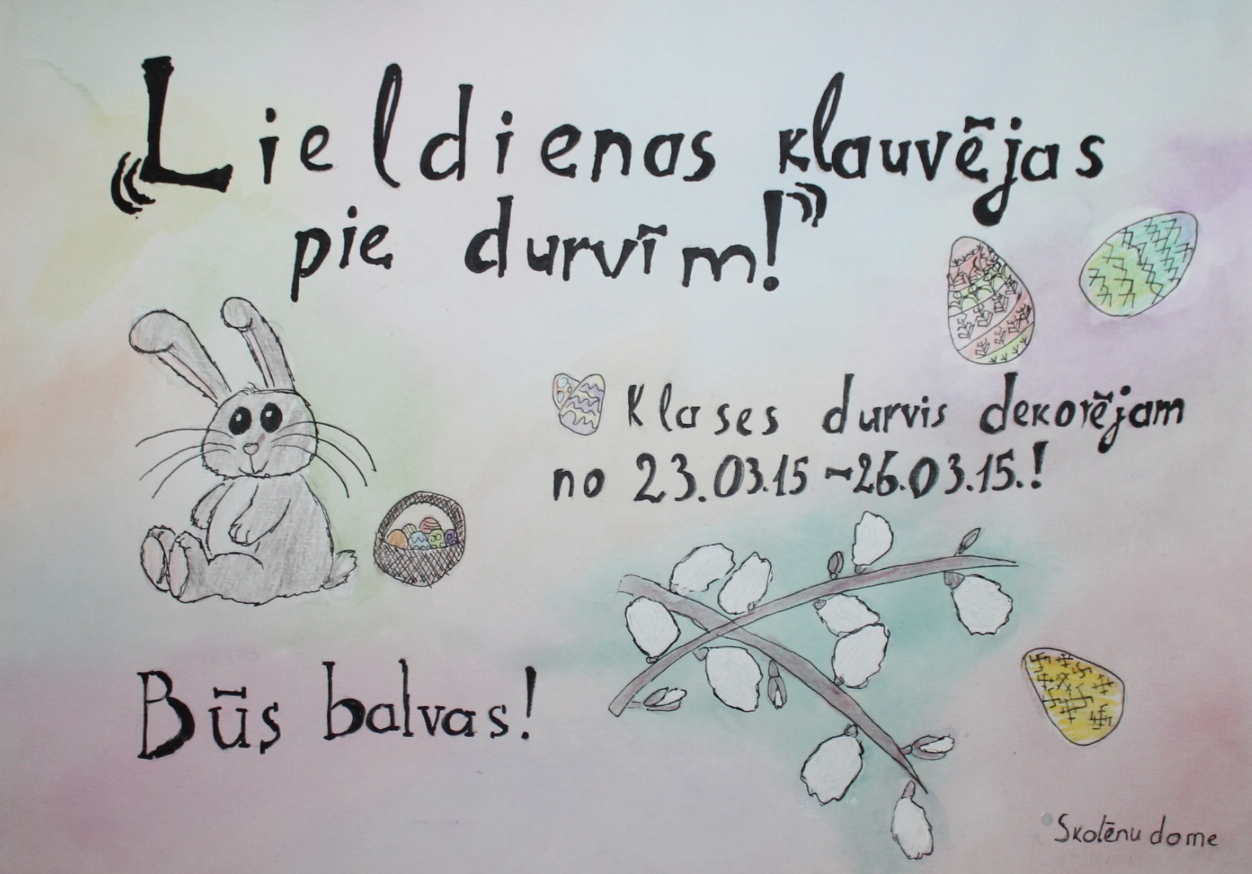 "Lieldienas klauvējas
pie durvīm!"
Klases durvis dekorējam
no 23.03.15 - 26.03.15.!
Būs balvas!
Skolēnu dome